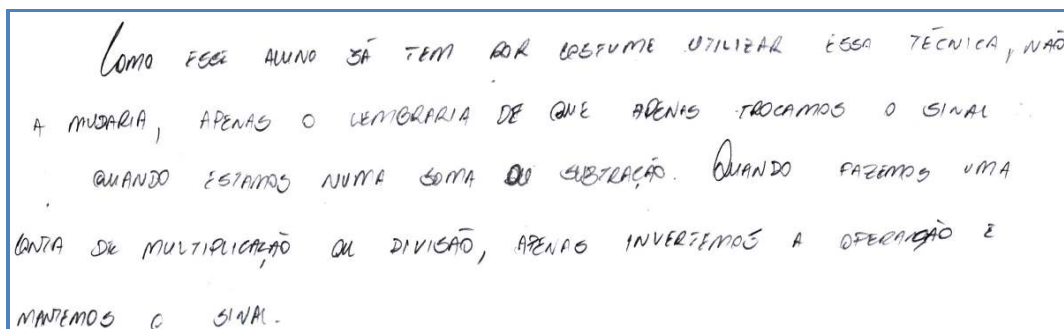 Como esse aluno já tem por costume utilizar essa técnica, não
a mudaria, apenas o lembraria de que apenas trocamos o sinal
quando estamos numa soma ou subtração. Quando fazemos uma
conta de multiplicação ou divisão, apenas invertemos a operação e
mantemos o sinal.